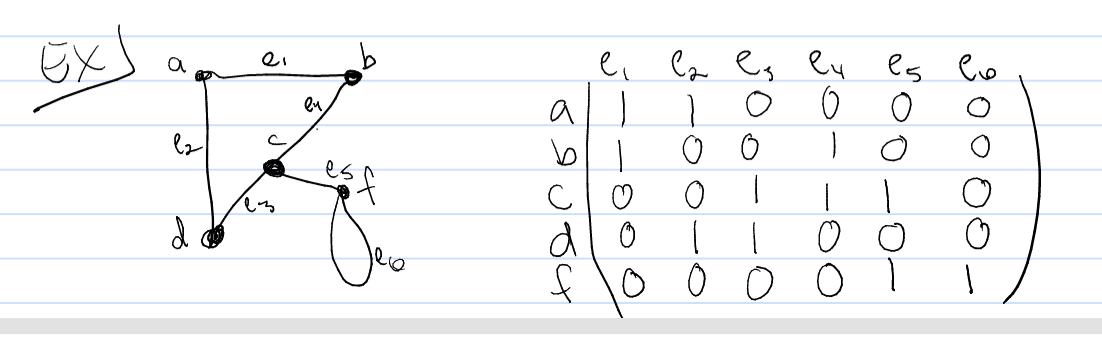 EX)
a e₁ b
e₄
e₂ c
e₅ f
e₃
d e₆
e₁ e₂ e₃ e₄ e₅ e₆
a 1 1 0 0 0 0
b 1 0 0 1 0 0
c 0 0 1 1 1 0
d 0 1 1 0 0 0
f 0 0 0 0 1 1